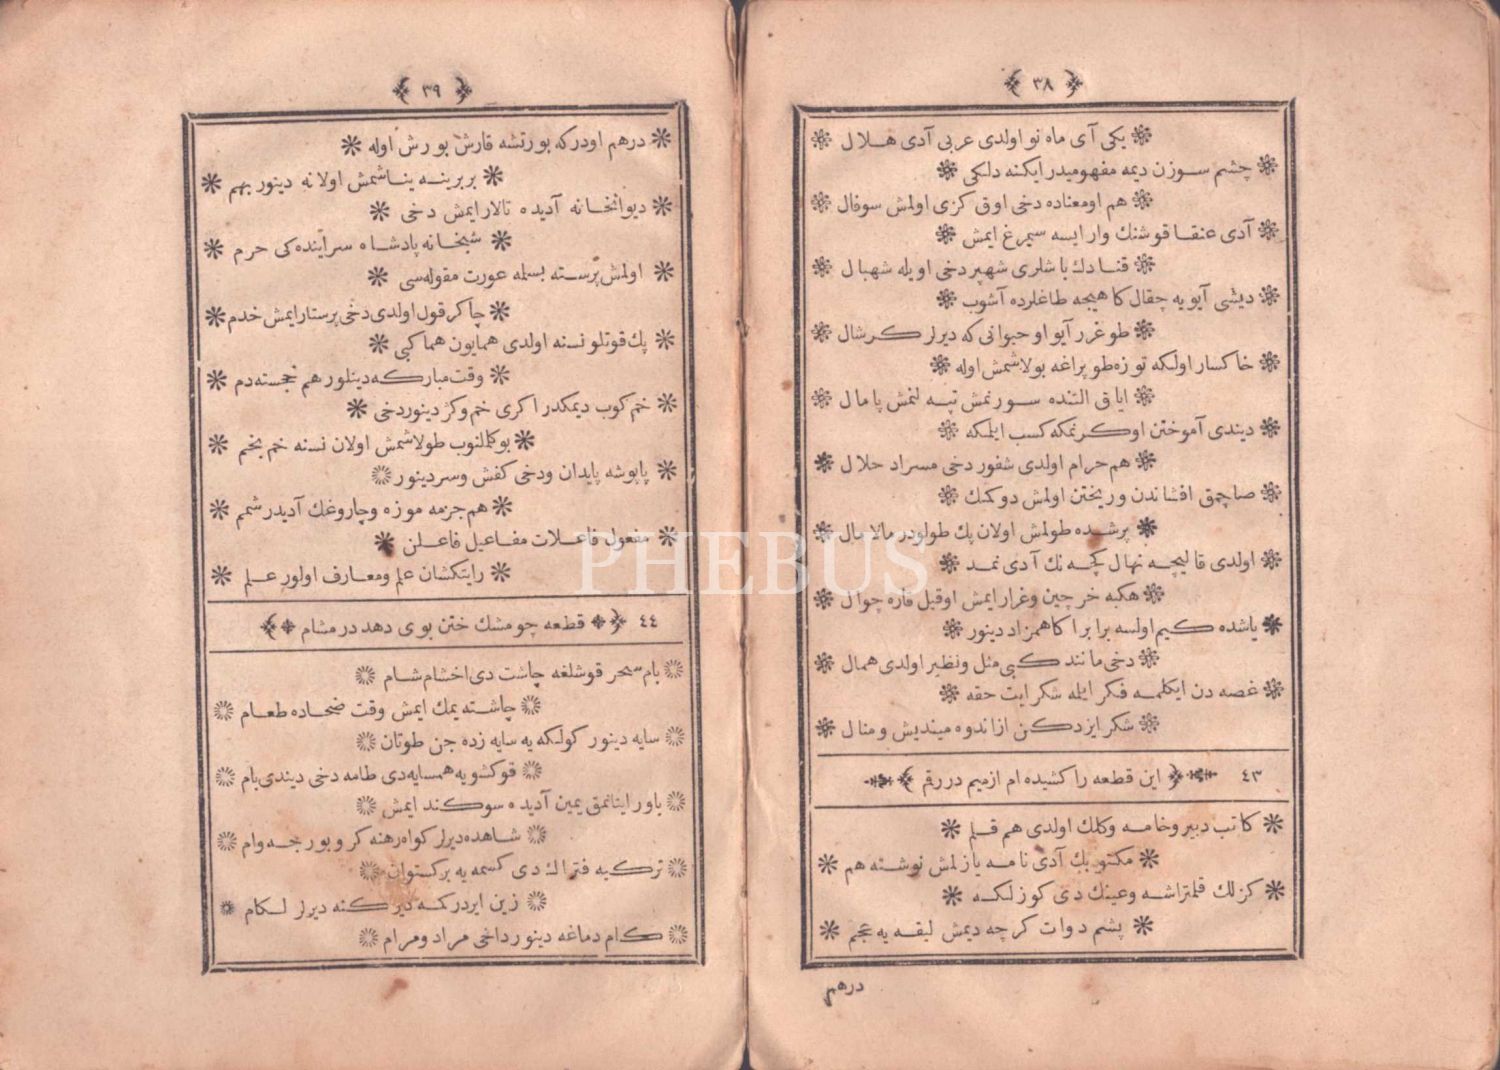 ﴿ ٣٨ ﴾
❋ یکی آی ماه نو اولدی عربی آدی هلال ❋
❋ چشم سوزن دیمه مفهومیدر ایکنه دلکی ❋
❋ هم او معناده دخی اوق کزی اولمش سوفال ❋
❋ آدی عنقا قوشنك وار ایسه سیمرغ ایمش ❋
❋ قنادك باشلری شهپر دخی اویله شهبال ❋
❋ دیشی آیو یه چقال کاهیجه طاغلرده آشوب ❋
❋ طوغرر آیو او حیوانی که دیرلر کرشال ❋
❋ خاکسار اولکه توزه طوپراغه بولاشمش اوله ❋
❋ ایاق التنده سورنمش تپه لنمش پامال ❋
❋ دیندی آموختن اوکرنمکه کسب ایلمکه ❋
❋ هم حرام اولدی شفور دخی مسراد حلال ❋
❋ صاچمق افشاندن و ریختن اولمش دوکمك ❋
❋ پرشده طولمش اولان پك طولودر مالامال ❋
❋ اولدی قالیچه نهال کچه نك آدی نمد ❋
❋ هکبه خرچین و غرار ایمش اوقیل قاره چوال ❋
❋ یاشده کیم اولسه برابر اکا همزاد دینور ❋
❋ دخی مانند کبی مثل و نظیر اولدی همال ❋
❋ غصه دن ایکلمه فکر ایله شکر ایت حقه ❋
❋ شکر ایزد کن از اندوه میندیش و منال ❋
٤٣ ﴿ این قطعه را کشیده ام از میم در رقم ﴾
❋ کاتب دبیر و خامه و کلك اولدی هم قلم ❋
❋ مکتوبك آدی نامه یازلمش نوشته هم ❋
❋ کزلك قلمتراشه و عینك دی کوزلکه ❋
❋ پشم دوات کرچه دیمش لیقه یه عجم ❋
درهم
﴿ ٣٩ ﴾
❋ درهم اودرکه بورتشه قارش بورش اوله ❋
❋ بربرینه یناشمش اولانه دینور بهم ❋
❋ دیوانخانه آدیده تالار ایمش دخی ❋
❋ شبخانه پادشاه سرآینده کی حرم ❋
❋ اولمش پرسته بسله عورت مقوله سی ❋
❋ چاکر قول اولدی دخی پرستار ایمش خدم ❋
❋ پك قوتلو نسنه اولدی همایون هما کبی ❋
❋ وقت مبارکه دینلور هم خجسته دم ❋
❋ خم کوب دیمکدر اکری خم و کژ دینور دخی ❋
❋ بوکلنوب طولاشمش اولان نسنه خم بخم ❋
❋ پاپوشه پایدان و دخی کفش و سر دینور ❋
❋ هم جزمه موزه و چاروغك آدیدر شمم ❋
❋ مفعول فاعلات مفاعیل فاعلن ❋
❋ رایتکشان علم و معارف اولور علم ❋
٤٤ ﴿ قطعه چو مشك ختن بوی دهد در مشام ﴾
❋ بام سحر قوشلغه چاشت دی اخشام شام ❋
❋ چاشته یمك ایمش وقت ضحاده طعام ❋
❋ سایه دینور کولکه یه سایه زده جن طوتان ❋
❋ قوکشو یه همسایه دی طامه دخی دیندی بام ❋
❋ یاور اینانمق یمین آدیده سوکند ایمش ❋
❋ شاهده دیرلر کواه رهنه کرو بورجه وام ❋
❋ ترکیه فتراك دی کسمه یه برکستوان ❋
❋ زین ایردر کمه دیر کنه دیرلر لکام ❋
❋ کام دماغه دینور داخی مراد و مرام ❋
PHEBUS